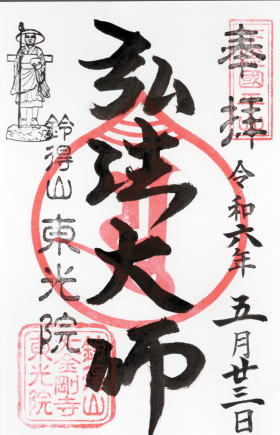 奉拝
令和六年 五月廿三日
弘法大師
鈴得山 東光院
鈴得山
金剛寺
東光院